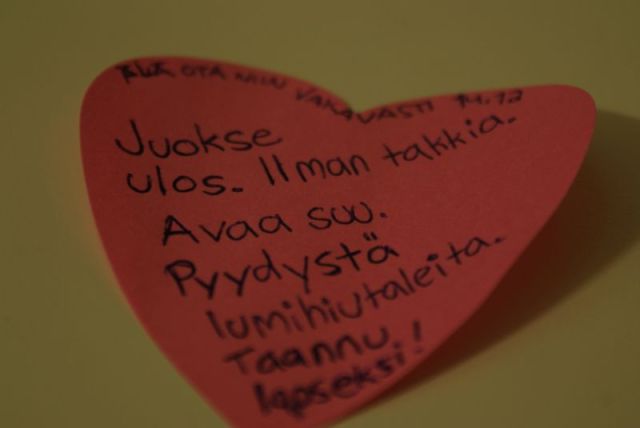 ÄLÄ OTA NIIN VAKAVASTI
Juokse
ulos. Ilman takkia.
Avaa suu.
Pyydystä
lumihiutaleita.
Taannu
lapseksi!